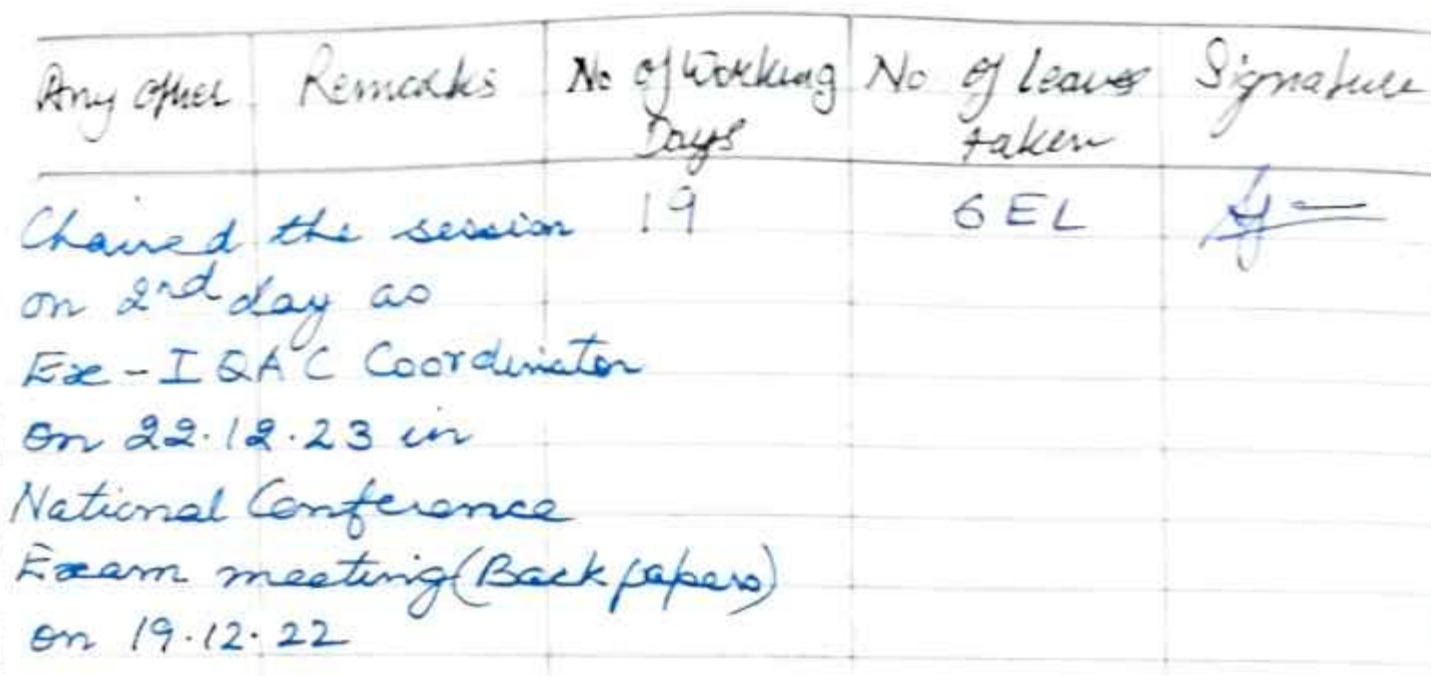 Any other Remarks No of Working No of leaves Signature
Days taken
Chaired the session 19 6 EL
on 2nd day as
Ex-IQAC Coordinator
on 22.12.23 in
National Conference
Exam meeting (Back papers)
on 19.12.22